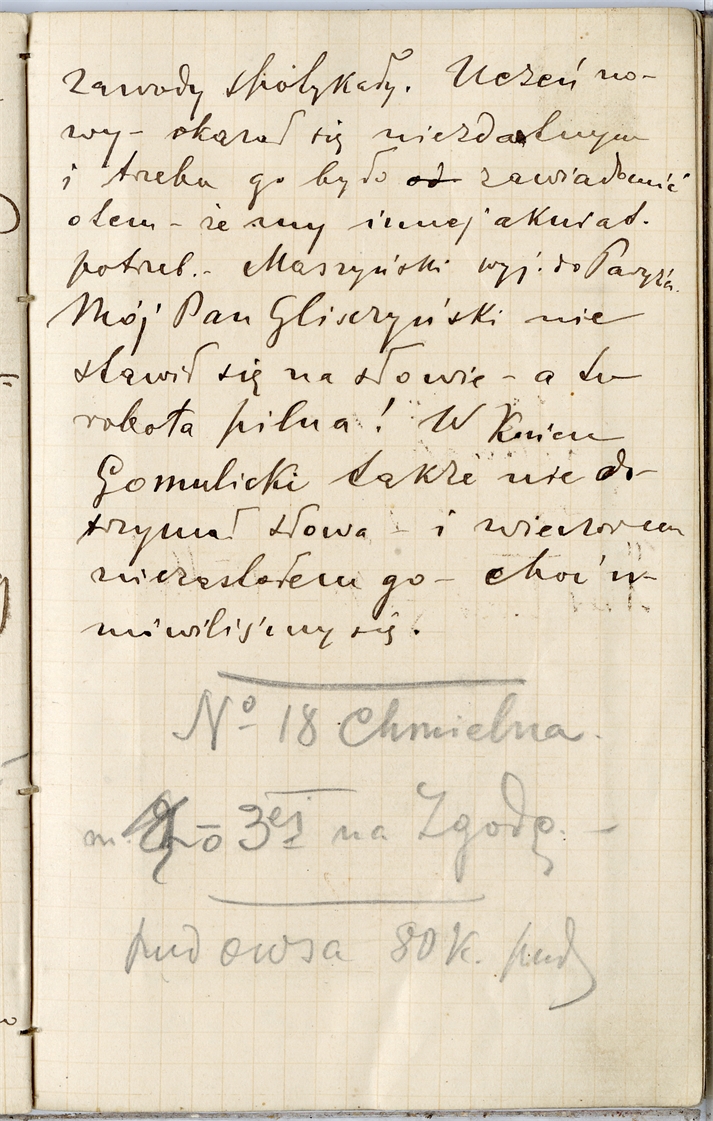 zawody spotykały. Uczeń no-
wy - okazał się niezdatnym
i trzeba go było od zawiadomić
otem - że my innej akurat.
potrzeb. - Maszyński wyj. do Paryża.
Mój Pan Gliszczyński nie
stawił się na słowie - a tu
robota pilna! W
Gomulicki także nie do-
trzymał słowa - i wieczorem
niezastałem go - choć u-
mówiliśmy się.
No 18 Chmielna.
m. 3ej na Zgodę. -
pud owsa 80 K. pud